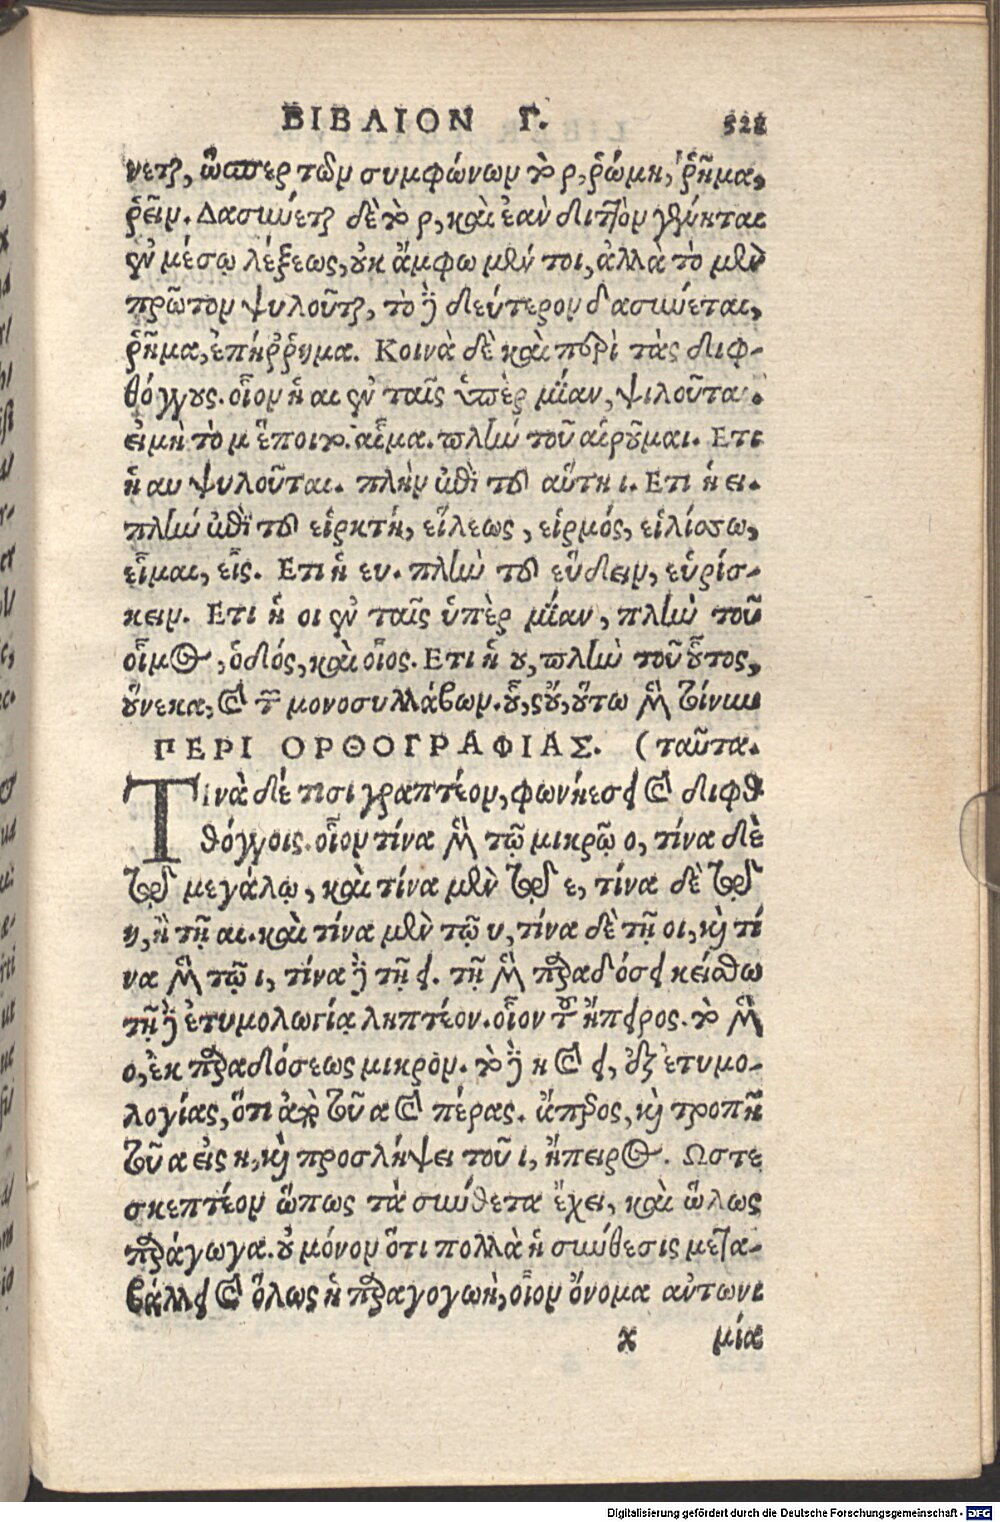 ΒΙΒΛΙΟΝ Γ. 328
νεται, ὥσπερ τῶν συμφώνων τὸ ρ, ῥώμη, ῥῆμα,
ῥεῖν. Δασύνεται δὲ τὸ ρ, καὶ ἐὰν διττὸν γένηται
ἐν μέσῳ λέξεως, οὐκ ἄμφω μέν τοι, ἀλλὰ τὸ μὲν
πρῶτον ψυλοῦται, τὸ δὲ δεύτερον δασύνεται,
ῥῆμα, ἐπίῤῥημα. Κοινὰ δὲ καὶ περὶ τὰς διφ-
θόγγους. οἷον ἡ αι ἐν ταῖς ὑπὲρ μίαν, ψιλοῦται.
εἰ μὴ τὸ μ ἕποιτο. αἷμα. πλὴν τοῦ αἱροῦμαι. Ετι
ἡ αυ ψυλοῦται. πλὴν ἀπὸ τοῦ αὕτη ι. Ετι ἡ ει.
πλὴν ἀπὸ τοῦ εἱρκτή, εἵλεως, εἱρμός, εἱλίσσω,
εἷμαι, εἷς. Ετι ἡ ευ. πλὴν τοῦ εὕδειν, εὑρίσ-
κειν. Ετι ἡ οι ἐν ταῖς ὑπὲρ μίαν, πλὴν τοῦ
οἷμος, ὁδός, καὶ οἷος. Ετι ἡ ου, πλὴν τοῦ οὗτος,
οὕνεκα, καὶ τῶν μονοσυλλάβων. οὗ, οὕ, οὕτω μὲν τοίνυν
ΠΕΡΙ ΟΡΘΟΓΡΑΦΙΑΣ. (ταῦτα.
Τινὰ δέ τισι γραπτέον, φωνήεσι καὶ διφθ
θόγγοις. οἷον τίνα μὲν τῷ μικρῷ ο, τίνα δὲ
τῷ μεγάλῳ, καὶ τίνα μὲν τῷ ε, τίνα δὲ τῷ
η, ἢ τῇ αι. καὶ τίνα μὲν τῷ υ, τίνα δὲ τῇ οι, καὶ τί
να μὲν τῷ ι, τίνα δὲ τῇ ει. τῇ μὲν παραδόσει κείσθω
τῇ δὲ ἐτυμολωγίᾳ ληπτέον. οἷον τοῦ ἤπειρος. τὸ μὲν
ο, ἐκ παραδόσεως μικρὸν. τὸ δὲ η καὶ ει, ἐξ ἐτυμο-
λογίας, ὅτι παρὰ τοῦ α καὶ πέρας. ἄπερος, καὶ τροπῇ
τοῦ α εἰς η, καὶ προσλήψει τοῦ ι, ἤπειρος. Ωστε
σκεπτέον ὥπως τὰ σύνθετα ἔχει, καὶ ὥλως
παράγωγα. οὐ μόνον ὅτι πολλὰ ἡ σύνθεσις μετα-
βάλλει καὶ ὅλως ἡ παραγογωὴ, οἷον ὄνομα αὐτωνι
x μία
Digitalisierung gefördert durch die Deutsche Forschungsgemeinschaft - DFG